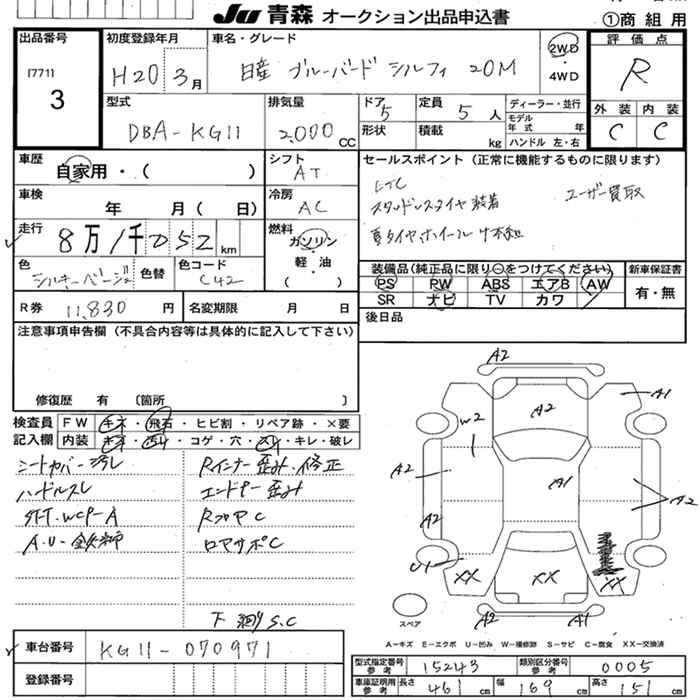 Ju 青森 オークション出品申込書
①商組用
出品番号
[771]
3
初度登録年月
H20 3月
車名・グレード
日産 ブルーバード シルフィ 20M
2WD
・
4WD
評価点
R
型式
DBA-KG11
排気量
2,000 CC
ドア 5
定員 5 人
形状
積載 kg
ディーラー・並行
モデル年式 年
ハンドル 左・右
外装 内装
C C
車歴
自家用・( )
シフト
AT
セールスポイント (正常に機能するものに限ります)
ETC
スタッドレスタイヤ装着
ユーザー買取
夏タイヤホイール付
車検
年 月 ( 日)
冷房
AC
走行
8万1千052 km
燃料
ガソリン
・
軽・油
( )
色
シルキーベージュ
色替
色コード
C42
装備品(純正品に限り○をつけてください)
PS PW ABS エアB AW
SR ナビ TV カワ
新車保証書
有・無
R券 11,830 円
名変期限 月 日
後日品
注意事項申告欄 (不具合内容等は具体的に記入して下さい)
修復歴 有 〔箇所 〕
検査員 FW キズ・飛石・ヒビ割・リペア跡・×要
記入欄 内装 キズ・汚れ・コゲ・穴・スレ・キレ・破レ
シートカバー汚レ Rインナー歪み・修正
ハンドルスレ エンドP-歪み
ｽﾃｱ.WCP-A RフロアC
A.U-鉄錆 ロアサポC
下廻りS.C
A2
A1
A2
W2
A2
A1
A2
A2
U1
XX
XX
XX
A2
A1
スペア
A-キズ E-エクボ U-凹み W-補修跡 S-サビ C-腐食 XX-交換済
車台番号 KG11-070971
登録番号
型式指定番号 参考 15243
類別区分番号 参考 0005
車庫証明用 参考 長さ 461 cm 幅 169 cm 高さ 151 cm